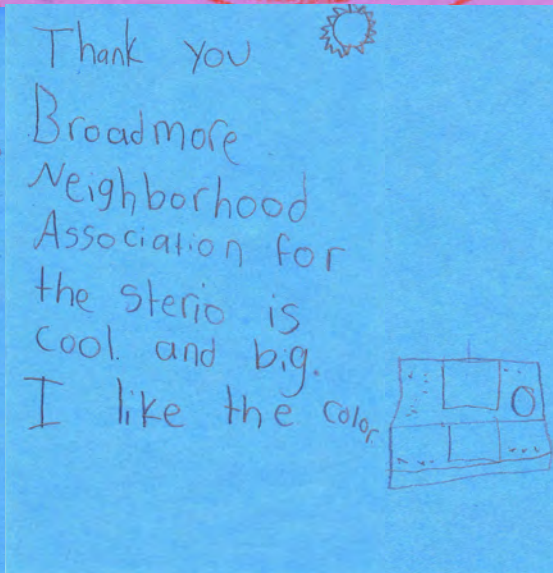 Thank you
Broadmore
Neighborhood
Association for
the sterio is
cool. and big.
I like the color